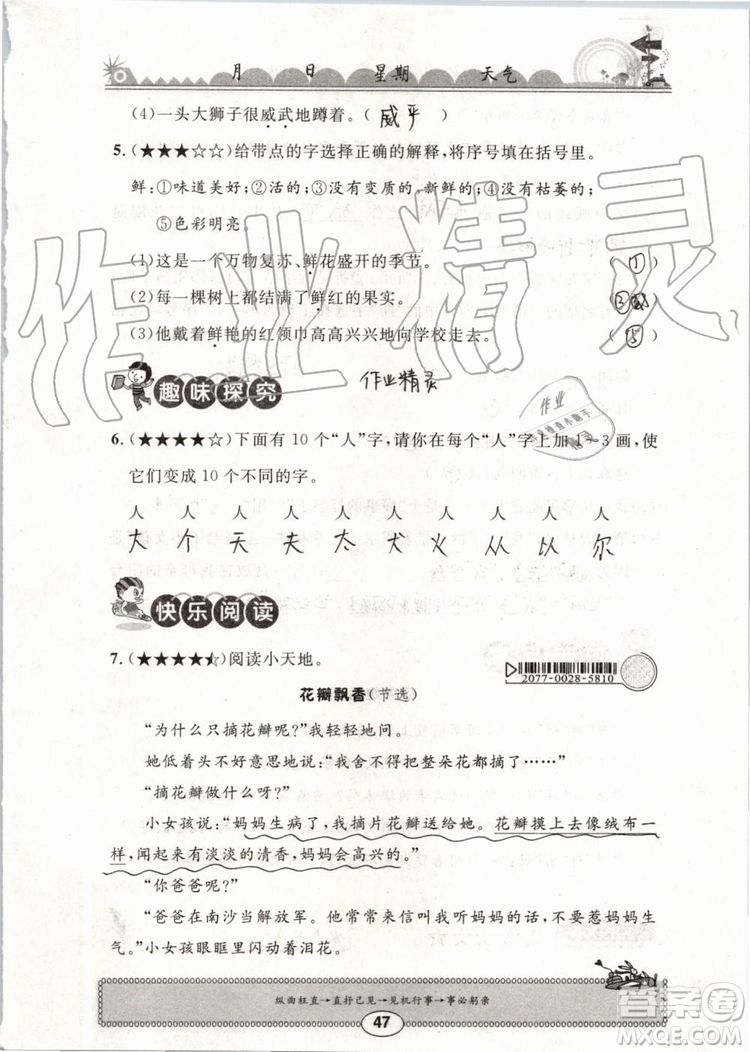 月 日 星期 天气
(4)一头大狮子很威武地蹲着。( 威平 )
5.(★★★☆☆)给带点的字选择正确的解释,将序号填在括号里。
鲜:①味道美好;②活的;③没有变质的、新鲜的;④没有枯萎的;
⑤色彩明亮。
(1)这是一个万物复苏、鲜花盛开的季节。 ( ① )
(2)每一棵树上都结满了鲜红的果实。
(3)他戴着鲜艳的红领巾高高兴兴地向学校走去。 ( ⑤ )
作业精灵
趣味探究
作业精灵
作业
精灵
6.(★★★★☆)下面有 10 个“人”字,请你在每个“人”字上加 1~3 画,使
它们变成 10 个不同的字。
人 人 人 人 人 人 人 人 人 人
大 个 天 夫 太 犬 火 从 以 尔
快乐阅读
7.(★★★★⯪)阅读小天地。
2077-0028-5810
花瓣飘香(节选)
“为什么只摘花瓣呢?”我轻轻地问。
她低着头不好意思地说:“我舍不得把整朵花都摘了……”
“摘花瓣做什么呀?”
小女孩说:“妈妈生病了,我摘片花瓣送给她。花瓣摸上去像绒布一
样,闻起来有淡淡的清香,妈妈会高兴的。”
“你爸爸呢?”
“爸爸在南沙当解放军。他常常来信叫我听妈妈的话,不要惹妈妈生
气。”小女孩眼眶里闪动着泪花。
纵曲枉直→直抒己见→见机行事→事必躬亲
47
答案卷